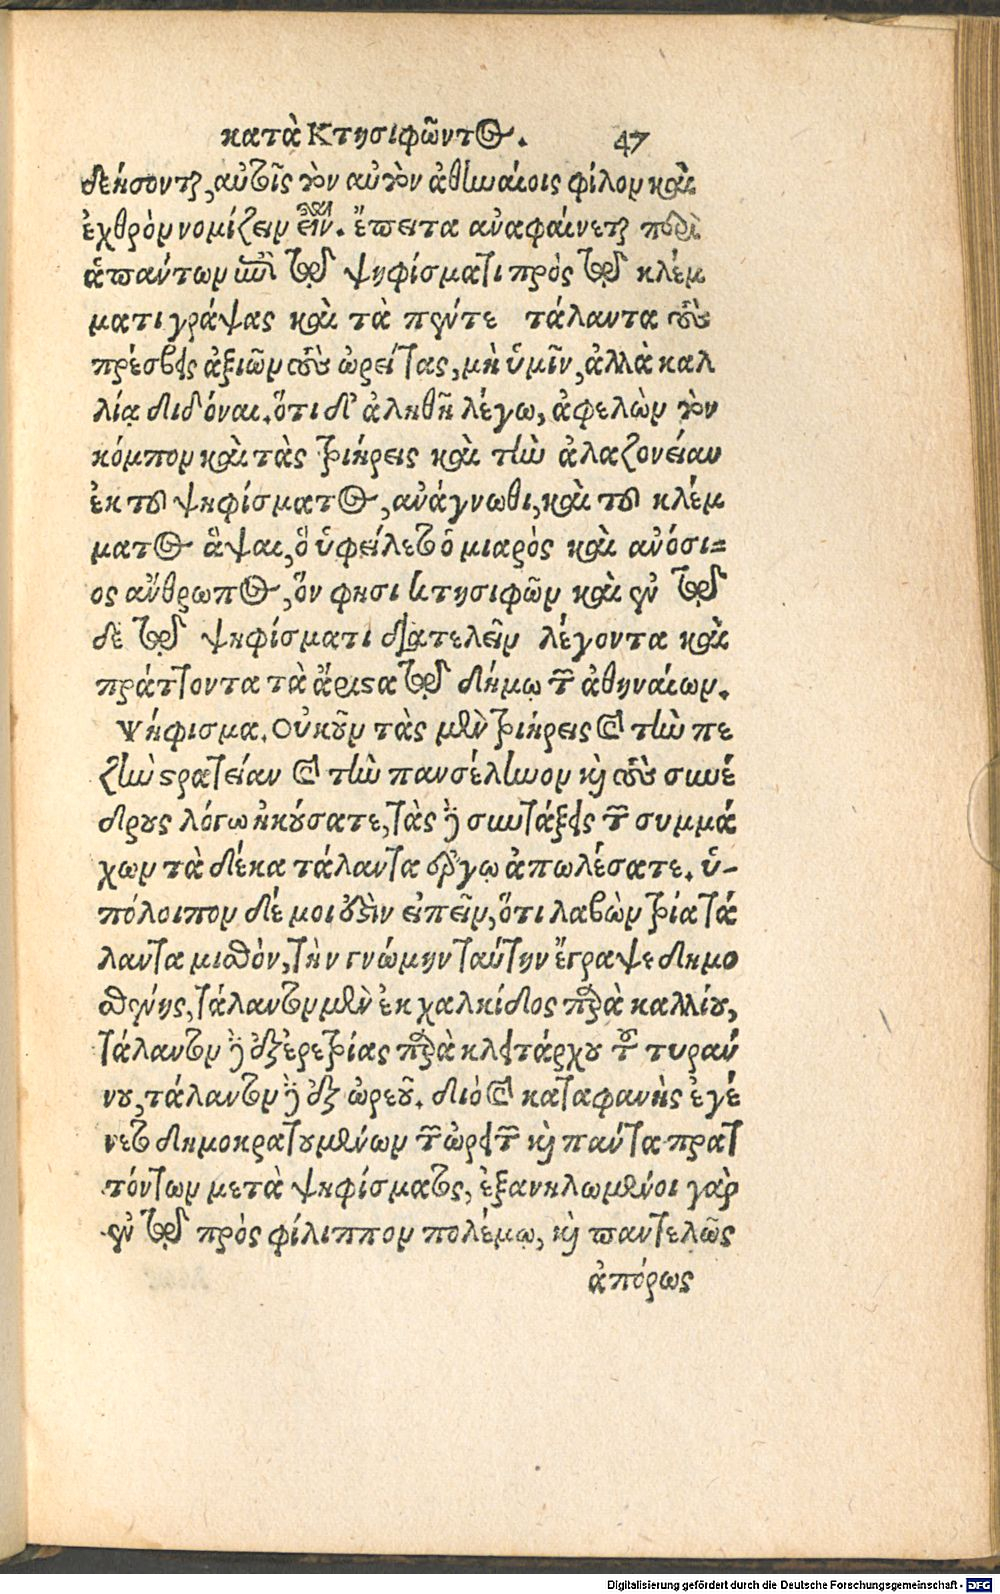 κατὰ Κτησιφῶντος. 47
δεήσονται, αὖθις τὸν αὐτὸν ἀθηναίοις φίλον καὶ
ἐχθρὸν νομίζειν εἶναι. ἔπειτα ἀναφαίνεται περὶ
ἁπάντων ἐν τῷ ψηφίσματι πρὸς τῷ κλέμ
ματι γράψας καὶ τὰ πέντε τάλαντα τοὺς
πρέσβεις ἀξιῶν τοὺς ὠρείτας, μὴ ὑμῖν, ἀλλὰ καλ
λίᾳ διδόναι. ὅτι δ' ἀληθῆ λέγω, ἀφελὼν τὸν
κόμπον καὶ τὰς τριήρεις καὶ τὴν ἀλαζονείαν
ἐκ τοῦ ψηφίσματος, ἀνάγνωθι, καὶ τοῦ κλέμ
ματος ἅψαι, ὃ ὑφείλετο ὁ μιαρὸς καὶ ἀνόσι=
ος ἄνθρωπος, ὅν φησι κτησιφῶν καὶ ἐν τῷ
δε τῷ ψηφίσματι διατελεῖν λέγοντα καὶ
πράττοντα τὰ ἄριστα τῷ δήμῳ τῶν ἀθηναίων.
Ψήφισμα. Οὐκοῦν τὰς μὲν τριήρεις καὶ τὴν πε
ζὴν στρατείαν καὶ τὴν πανσέληνον καὶ τοὺς συνέ
δρους λόγω ἠκούσατε, τὰς δὲ συντάξεις τῶν συμμά
χων τὰ δέκα τάλαντα ἔργῳ ἀπωλέσατε. ὑ-
πόλοιπον δέ μοι οὐδὲν εἰπεῖν, ὅτι λαβὼν τρία τά
λαντα μισθὸν, τὴν γνώμην ταύτην ἔγραψε δημο
σθένης, τάλαντον μὲν ἐκ χαλκίδος παρὰ καλλίου,
τάλαντον δὲ ἐξ ἐρετρίας παρὰ κλειτάρχου τοῦ τυράν
νου, τάλαντον δὲ ἐξ ὠρεοῦ. διὸ καὶ καταφανὴς ἐγέ
νετο δημοκρατουμένων τῶν ὠρειτῶν καὶ πάντα πρατ
τόντων μετὰ ψηφίσματος, ἐξανηλωμένοι γὰρ
ἐν τῷ πρὸς φίλιππον πολέμῳ, καὶ παντελῶς
ἀπόρως
Digitalisierung gefördert durch die Deutsche Forschungsgemeinschaft - DFG